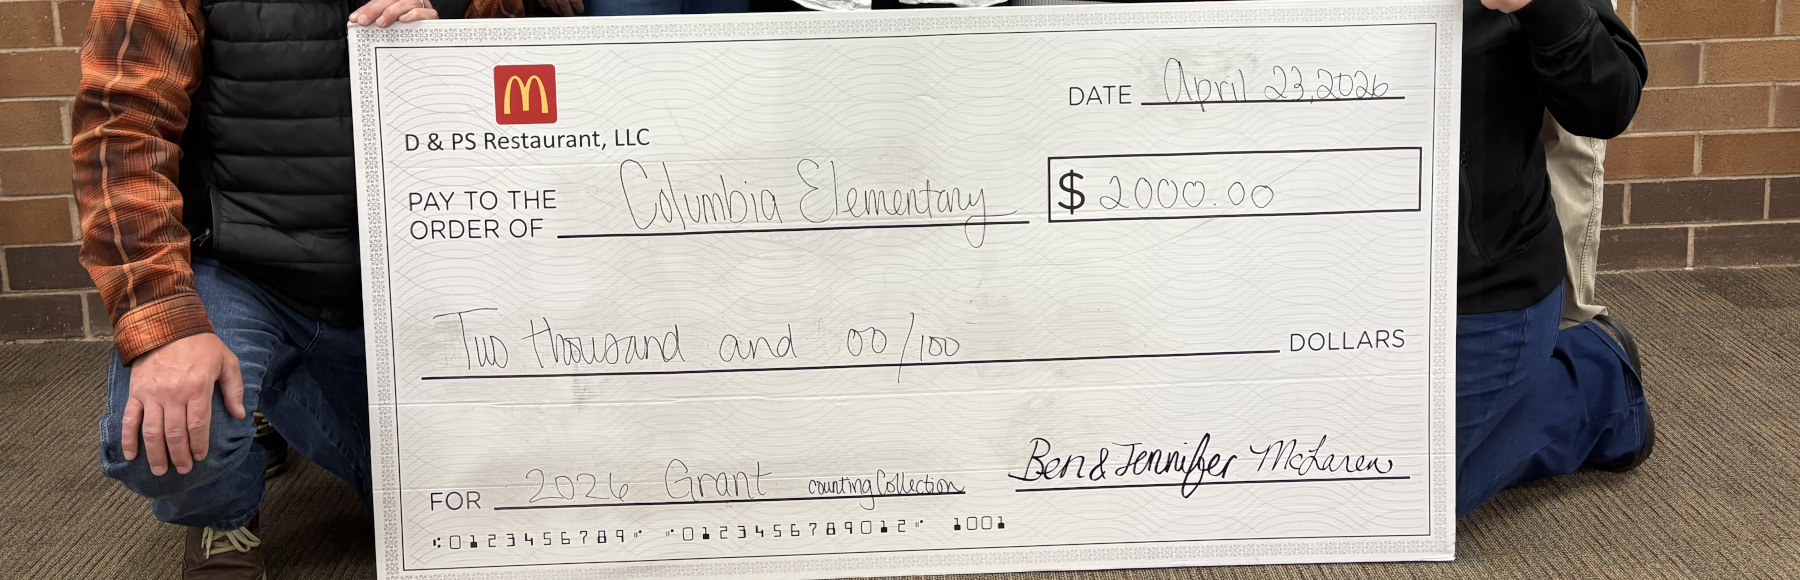 DATE April 23, 2026
D & PS Restaurant, LLC
PAY TO THE
ORDER OF Columbia Elementary $ 2000.00
Two thousand and 00/100 DOLLARS
FOR 2026 Grant counting Collection Ben & Jennifer McLaren
⑆0123456789⑈ ⑈0123456789012⑈ 1001